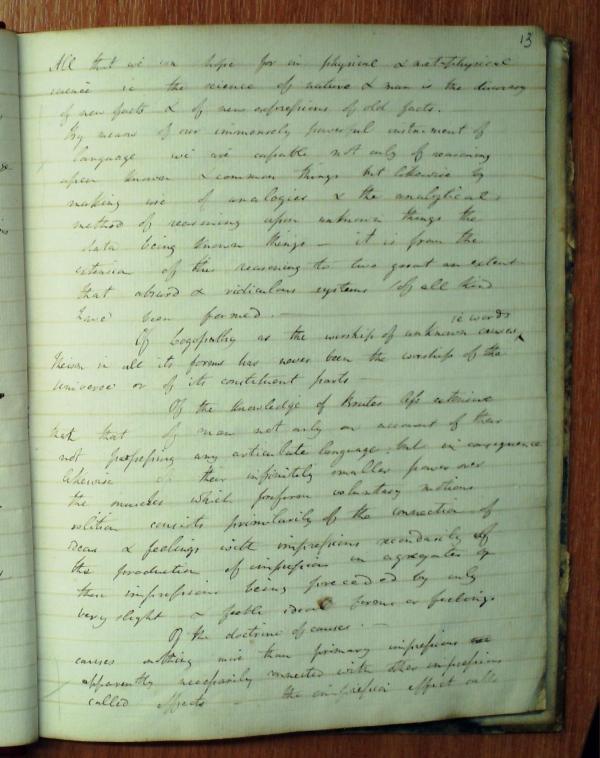 13
All that we can hope for in physical & metaphysical
science ie the science of nature & man is the discovery
of new facts & of new expressions of old facts.
By means of our immensely powerful instrument of
language we are capable not only of reasoning
upon known & common things but likewise by
making use of analogies & the analytical
method of reasoning upon unknown things the
data being known things – it is from the
extension of this reasoning to two great an extent
that absurd & ridiculous systems of all kind
have been formed. —
ie words
Of Logopathy as the worship of unknown causes,
Theism in all its forms has never been the worship of the
Universe or of its constituent parts
Of the knowledge of Brutes less extensive
that that of man not only on account of their
not possessing any articulate language, but in consequence
likewise of their infinitely smaller power over
the muscles which perform voluntary motions
volition consists primarily of the connection of
ideas & feelings with impressions secondarily of
the production of impressions in aggregates of
them impressions being preceded by only
very slight & feeble ideal terms or feelings
Of the doctrine of causes. —
causes nothing more than primary impressions
apparently necessarily connected with other impressions
called effects — the impression effect